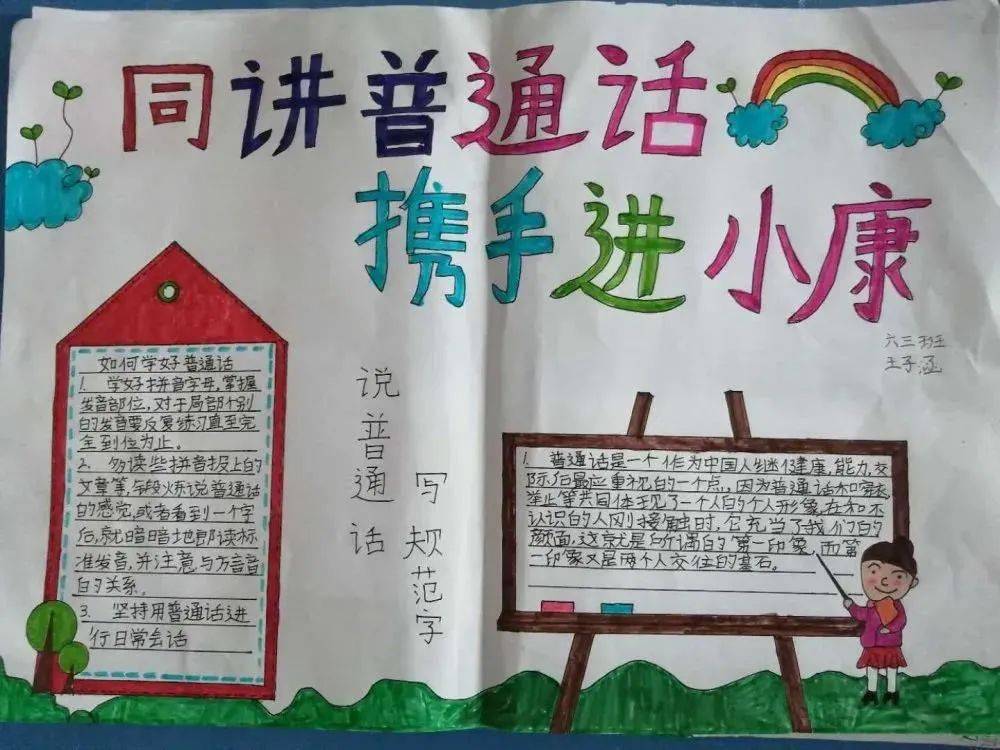 同讲普通话
携手进小康
六三班
王子涵
如何学好普通话
1. 学好拼音字母,掌握
发音部位,对于局部个别
的发音要反复练习直至完
全到位为止。
2. 多读些拼音报上的
文章等,与段火练说普通话
的感觉,或者看到一个字
后,就暗暗地即读标
准发音,并注意与方言音
的关系。
3. 坚持用普通话进
行日常会话
说普通话
写规范字
1. 普通话是一个作为中国人继健康,能力,交
际后最应重视的一个点,因为普通话和穿衣
举止等共同体现了一个人的个人形象,在和不
认识的人刚接触时,它充当了我们的
颜面,这就是所谓的第一印象,而第
一印象又是两个人交往的基石。